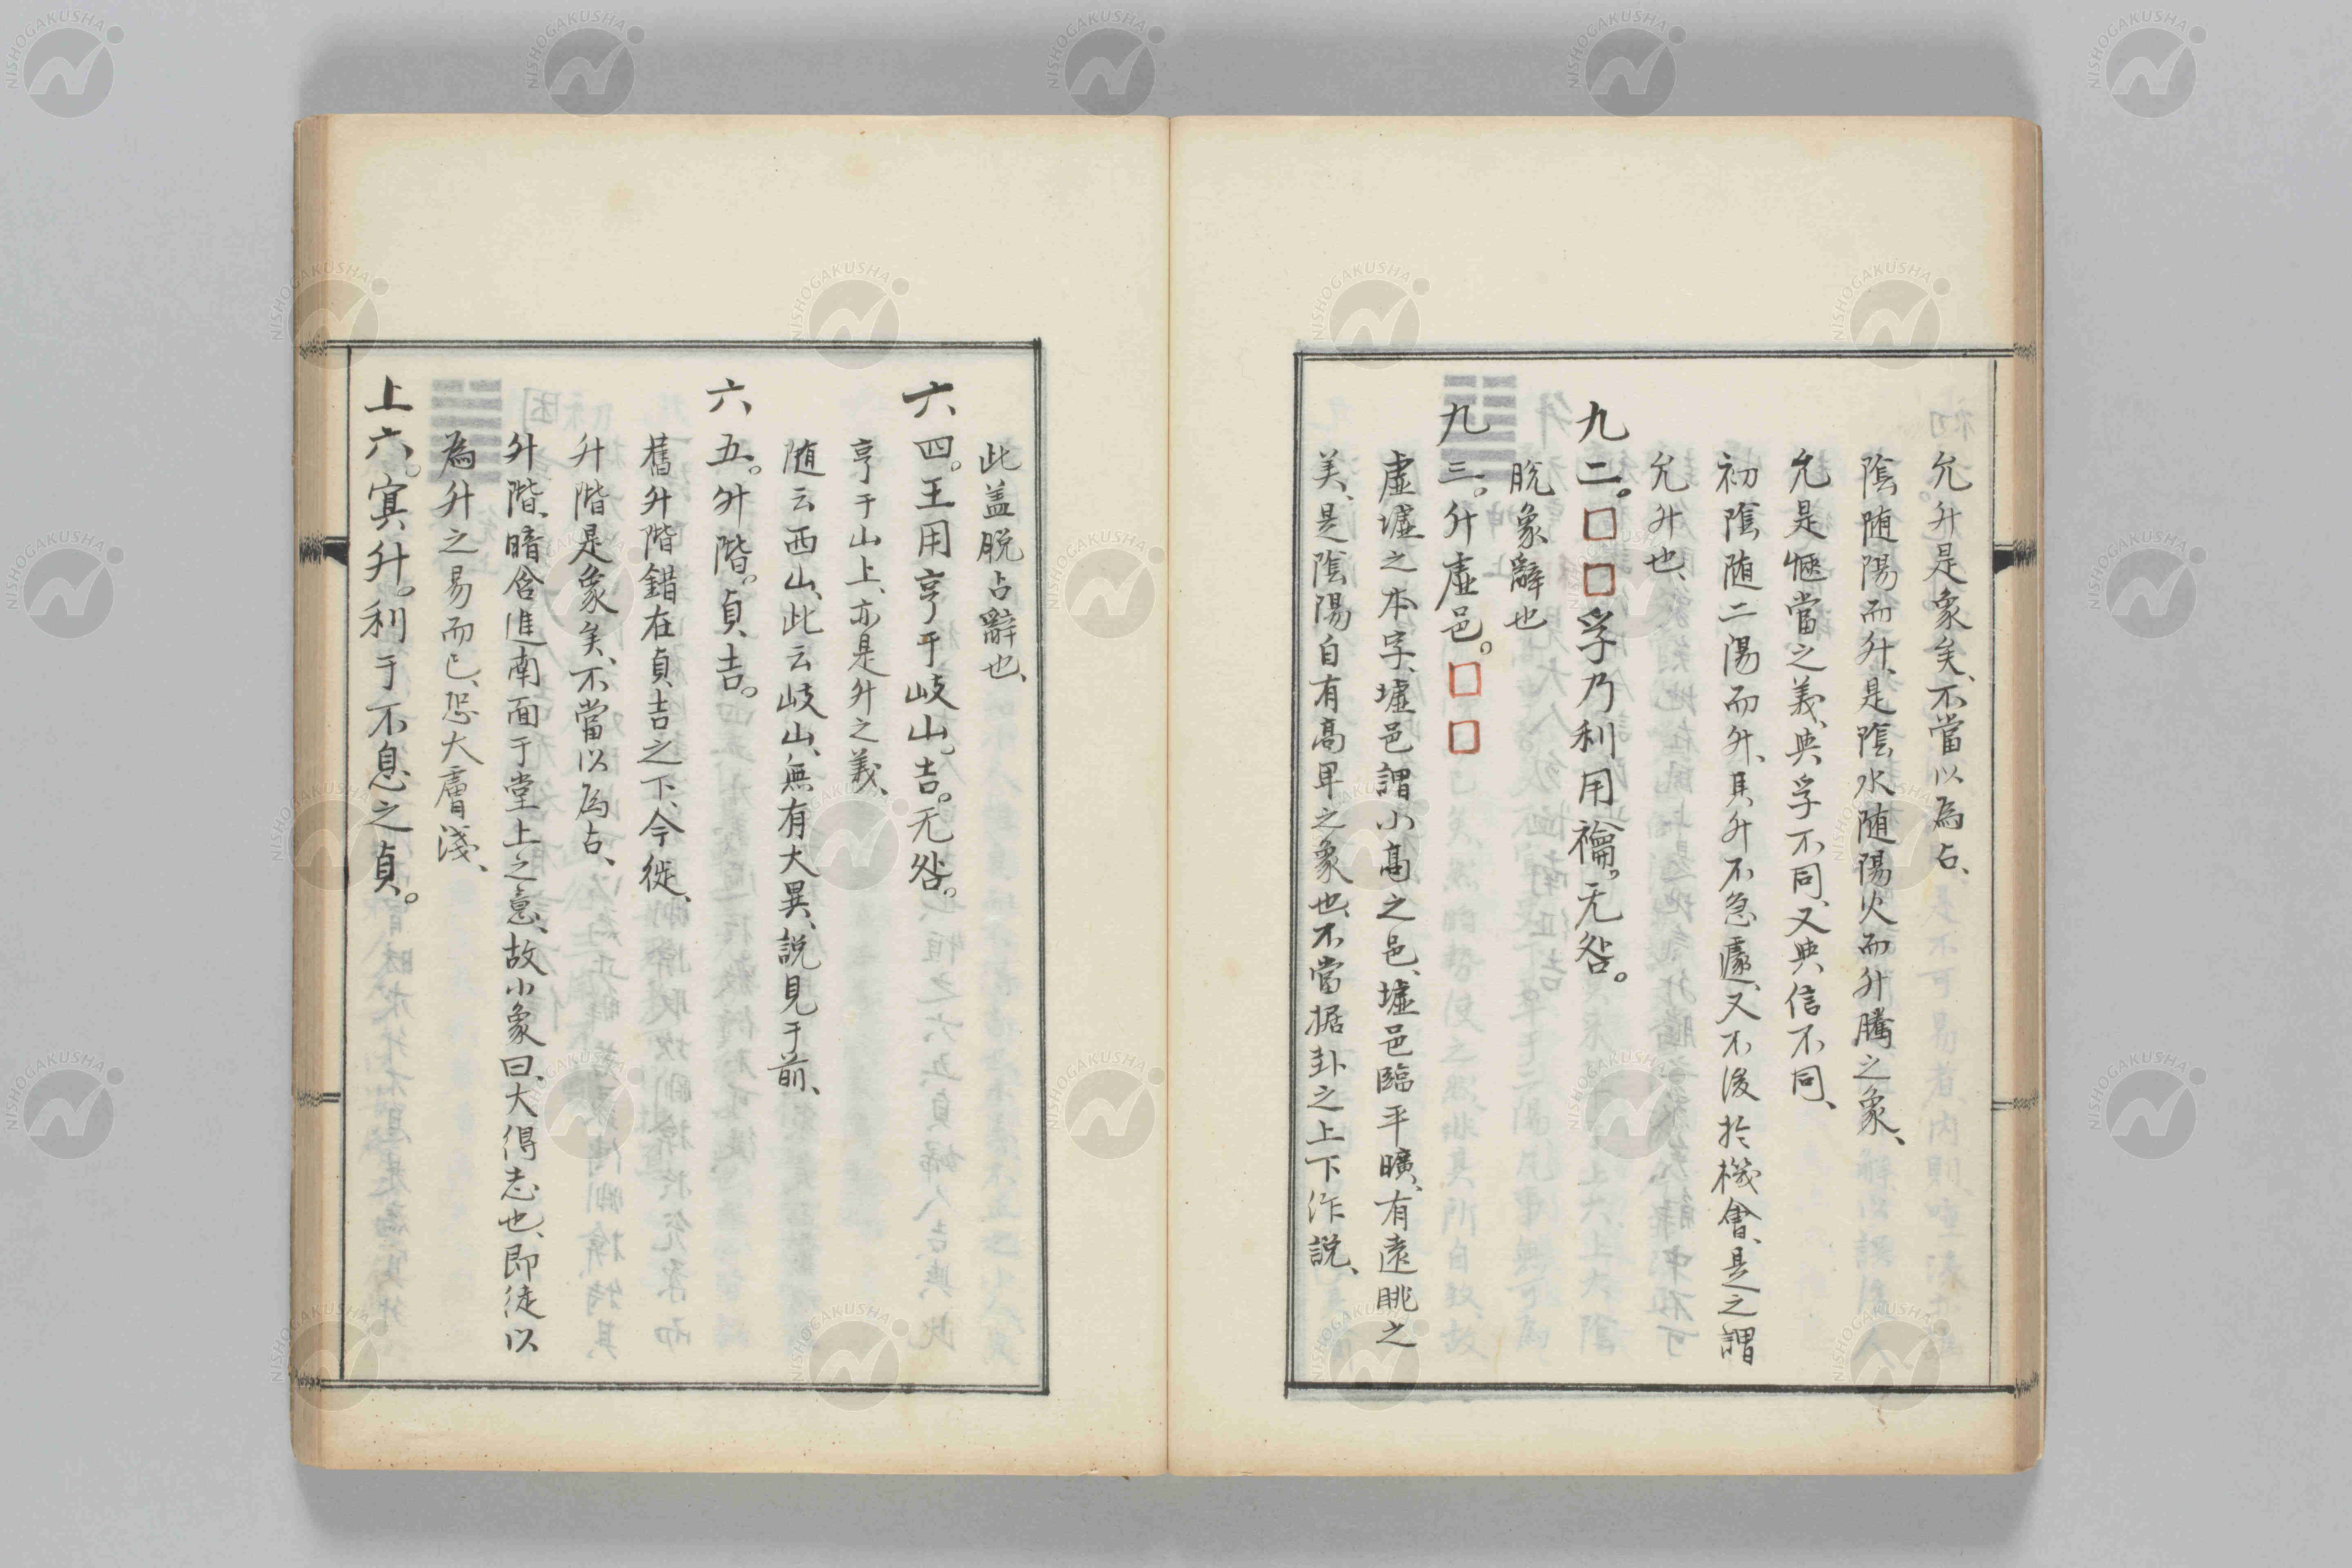 允升是象矣、不當以為占、
陰随陽而升、是陰水随陽火而升騰之象、
允是愜當之義、與孚不同、又與信不同、
初陰随二陽而升、其升不急遽、又不後於機會、是之謂
允升也、
九二。□□孚乃利用禴。无咎。
脫象辭也
九三。升虛邑。□□
虛墟之本字、墟邑謂小高之邑、墟邑臨平曠、有遠眺之
美、是陰陽自有高卑之象也、不當据卦之上下作説、
此盖脱占辭也、
六四。王用亨于岐山。吉。无咎。
亨于山上、亦是升之義、
随云西山、此云岐山、無有大異、説見于前、
六五。升階。貞吉。
舊升階錯在貞吉之下、今徙、
升階是象矣、不當以為占、
升階、暗含進南面于堂上之意、故小象曰、大得志也、即徒以
為升之易而已、恐大膚淺、
上六。冥升。利于不息之貞。
NISHOGAKUSHA